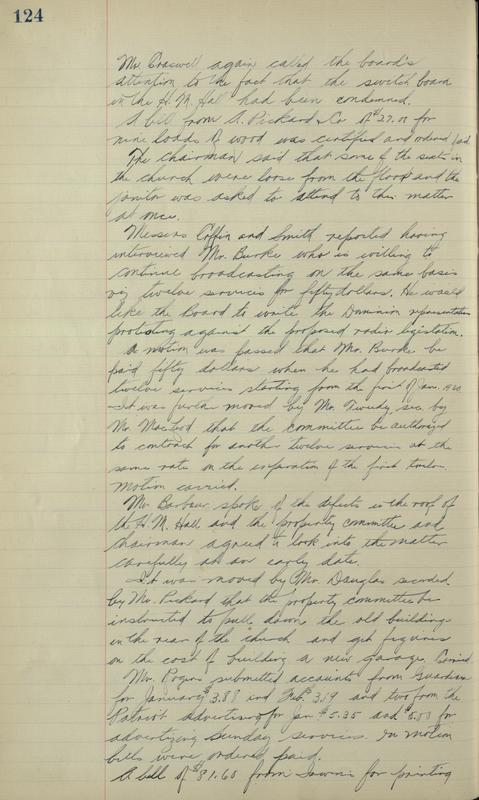 124
Mr. Craswell again called the board's
attention to the fact that the switch board
in the H. M. Hall had been condemned.
A bill from A. Pickard & Co of $27.00 for
nine loads of wood was certified and ordered paid.
The chairman said that some of the seats in
the church were loose from the floor and the
janitor was asked to attend to this matter
at once.
Messers Coffin and Smith reported having
interviewed Mr. Burke who is willing to
continue broadcasting on the same basis
viz twelve services for fifty dollars. He would
like the board to write the Dominion representatives
protesting against the proposed radio legislation.
A motion was passed that Mr. Burke be
paid fifty dollars when he had broadcasted
twelve services starting from the first of Jan.
It was further moved by Mr. Tweedy sec. by
Mr. MacLeod that the committee be authorized
to contract for another twelve services at the
same rate on the expiration of the first twelve.
Motion carried.
Mr. Barbour spoke of the defects in the roof of
the H. M. Hall and the property committee and
chairman agreed to look into the matter
carefully at an early date.
It was moved by Mr. Douglas seconded
by Mr. Pickard that the property committee be
instructed to pull down the old building
in the rear of the church and get figures
on the cost of building a new garage. Carried
Mr. Rogers submitted accounts from Guardian
for January $3.88 and Feb. 3.19 and two from the
Patriot advertising for Jan $5.35 and for
advertizing Sunday services. On motion
bills were ordered paid.
A bill of $31.60 from Irwin for printing